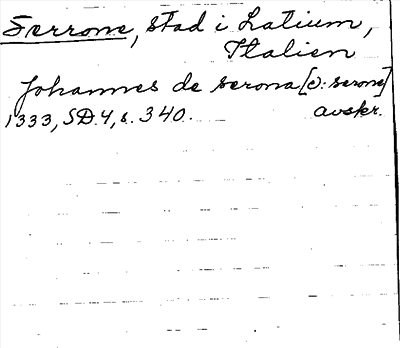 Serrone, stad i Latium,
Italien
Johannes de serona [ɔ: serone]
1333, SD. 4, s. 340. avskr.